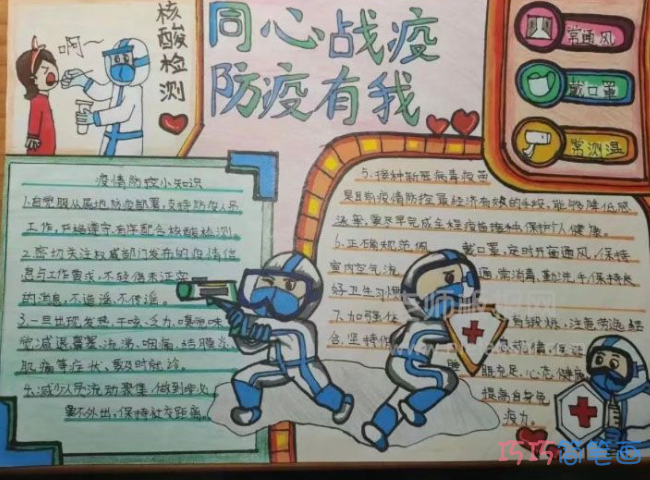 核酸检测
啊~
同心战疫
防疫有我
常通风
戴口罩
常测温
疫情防控小知识
1.自觉服从属地防疫部署,支持防疫人员
工作,在编遵守有序配合核酸检测。
2.密切关注权威部门发布的疫情信
息与工作要求,不轻信未证实
的消息,不造谣,不传谣。
3.一旦出现发热、干咳、乏力、嗅觉味
觉减退、鼻塞、流涕、咽痛、结膜炎
肌痛等症状,要及时就诊
4.减少人员流动聚集,做到非必
要不外出,保持社交距离。
5.接种新冠病毒疫苗
是目前疫情防控最经济有效的手段,能够降低感
染率,要尽早完成全程疫苗接种保护个人健康。
6.正确规范佩 戴口罩,定时开窗通风,保持
室内空气流 通,常消毒,勤洗手,保持良
好卫生习惯
7.加强体 育锻炼,注意劳逸结
合,坚持作 息规律,保证
睡 眠充足,心态健康
提高自身免
疫力。
巧巧简笔画